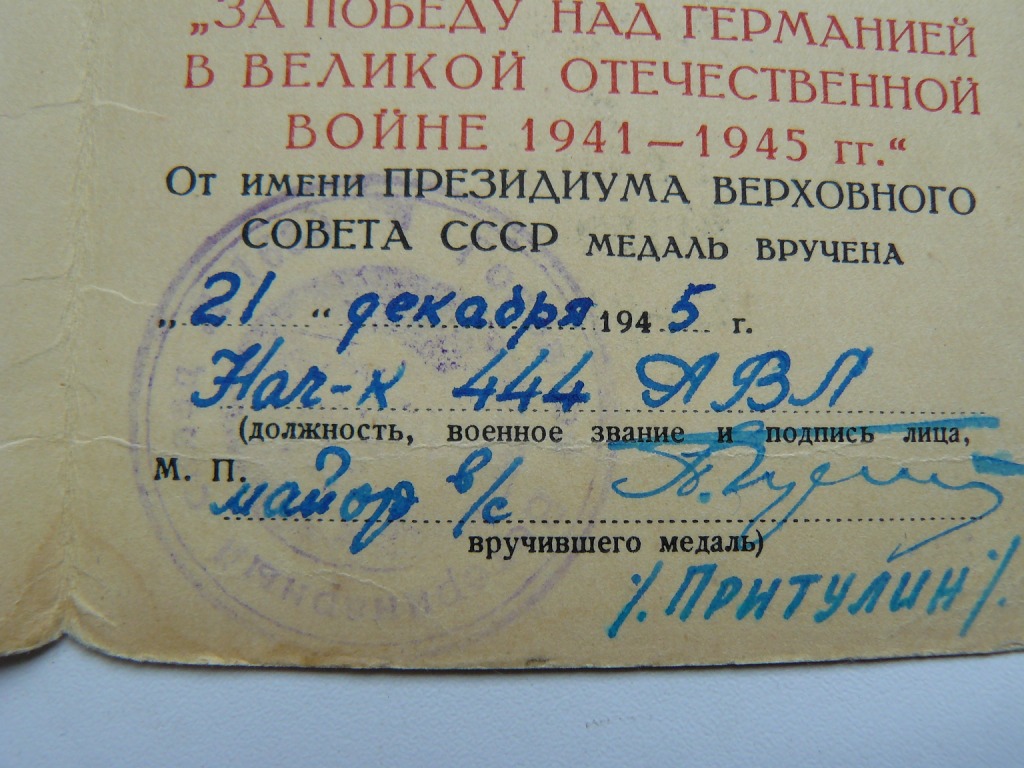 „ЗА ПОБЕДУ НАД ГЕРМАНИЕЙ
В ВЕЛИКОЙ ОТЕЧЕСТВЕННОЙ
ВОЙНЕ 1941—1945 гг.“
От имени ПРЕЗИДИУМА ВЕРХОВНОГО
СОВЕТА СССР МЕДАЛЬ ВРУЧЕНА
„21“ декабря 1945 г.
Нач-к 444 АВЛ
(должность, военное звание и подпись лица,
М. П.
майор в/с
вручившего медаль)
/. Притулин /.